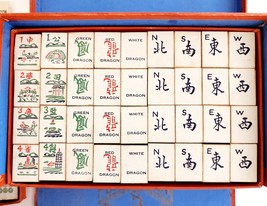 1 1 公 GREEN DRAGON RED DRAGON WHITE DRAGON N 北 S 南 E 東 W 西
2 2 GREEN DRAGON RED DRAGON WHITE DRAGON N 北 S 南 E 東 W 西
3 GREEN DRAGON RED DRAGON WHITE DRAGON N 北 S 南 E 東 W 西
4 4 GREEN DRAGON RED DRAGON WHITE DRAGON N 北 S 南 E 東 W 西